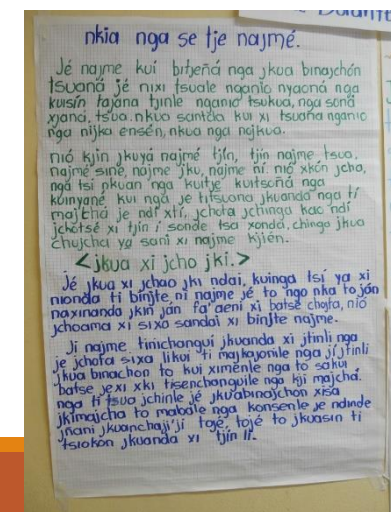 Dulante
nkia nga se tje najmé.
Jé najme kui britjeñá nga jkua binajchón
tsuaná jé nixi tsuale nganio nyaoná nga
kuisín tajana tjinle nganió tsukua, nga soná
xjaná, tsua. nkua santda kui xi tsuaná nganio
nga nijka ensén, nkua nga najkua.
nió kjin jkuyá najmé tjín, tjin najme tsua,
najmé siné, najme jku, najme ní. nió xkón jcha,
ngá tsi nkuan nga kuitje kuitsoñá nga
kuinyané kui nga je titsuona jkuanda nga tí
majchá je ndí xtí, jchota jchinga kao ndí
jchotsé xi tjín i sonde tsa xondá, chingo jkua
chujcha ya sani xi najme kjién.
<jkua xi jcho jki.>
Jé jkua xi jchao jki ndai, kuinga tsí ya xi
nionda ti binjte, ni najme jé to ngo nka to ján
naxinanda jkin ján fa'aení xi batse chota, nió
jchoama xi sixo sandai xi binjte najme.
Ji najme tinichangui jkuanda xi jtinli nga
je jchota sixa likui ti majkajonile nga jí jtinli
jkua binachon to kui ximénle nga to sakui
batse jexi xki tisenchanguile nga kji majchá.
nga ti tsua jchinle jé jkuabinajchon xisa
jkimajcha to mabále nga konsenle je ndinde
jñani jkuanchaji'jí tojé, tojé to jkuasin ti
tsiokón jkuanda xi tjín lí.